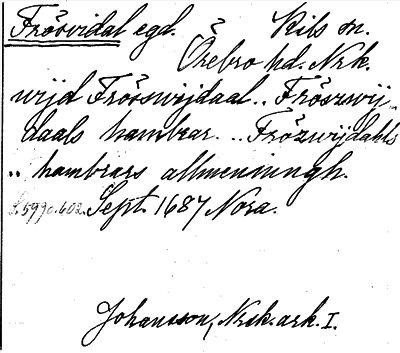 Frösvidal egd. Kils sn.
Örebro hd. Nrk.
wijd Frösswijdaal .. Fröszwij-
daals hambrar. .. Frözwijdahls
.. hambrars allmenningh.
S. 599 o. 602. Sept. 1687 Nora.
Johansson, Nrk. ark. I.